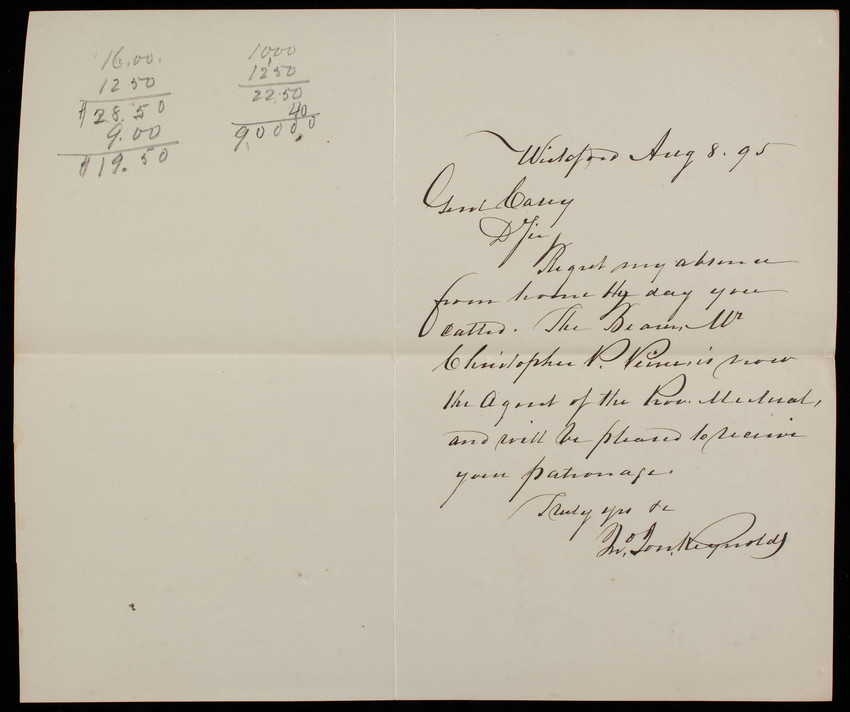 16.00.
12 50
$28.50
9.00
$19.50
1000
1250
22.50
40
90000
Wickford Aug 8. 95
Genl Casey
D Sir
Regret my absence
from home the day you
called. The Bearer, Mr
Christopher P. is now
the Agent of the Prov. Mutual,
and will be pleased to receive
your patronage.
Truly yrs &c
Reynolds